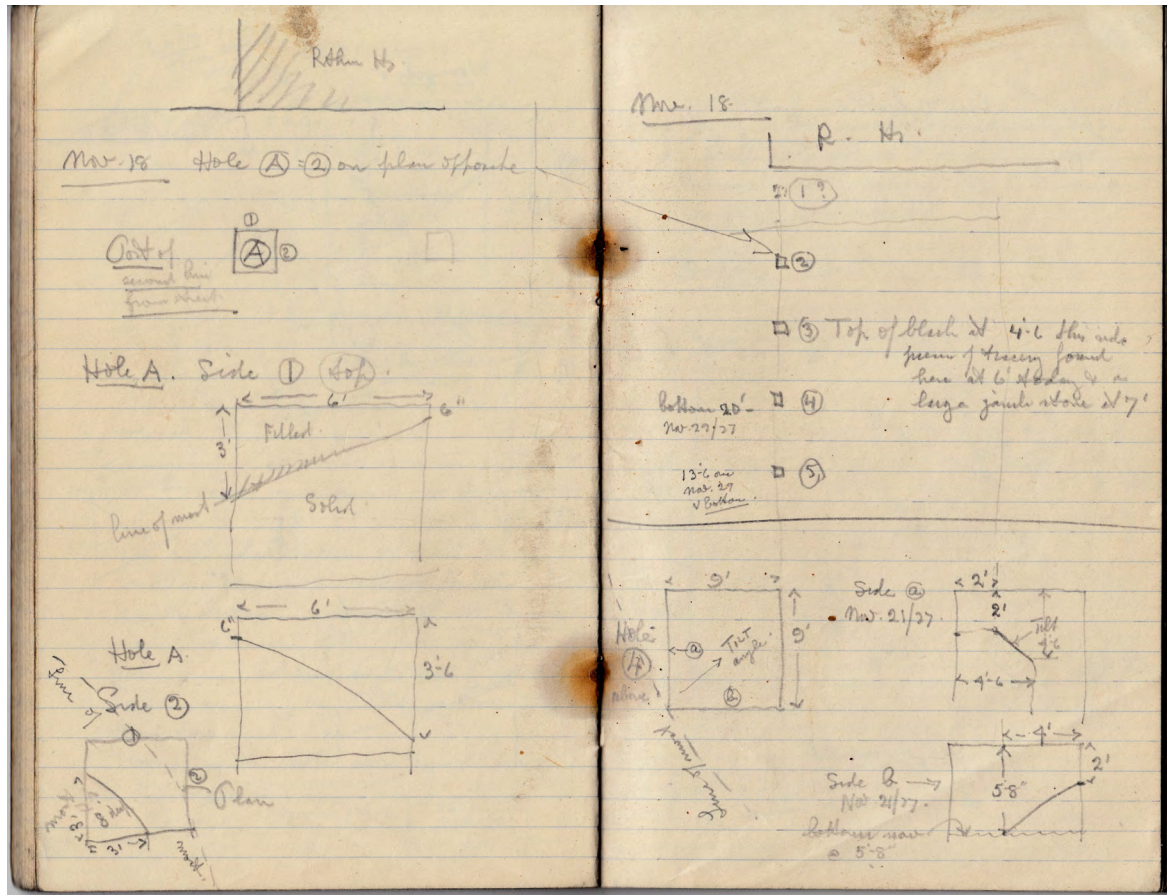 Nov. 18 Hole Ⓐ = ② on plan opposite
①
Ⓐ ②
of
second
from street
Hole A. Side ① (top).
6'
6"
3'
Filled
Solid
line of moat
6'
6"
Hole A
3'-6
Side ②
line of
①
②
Plan
3'
moat
Nov. 18
R. Hs.
1?
②
③ Top of black at 4'-6 this side
piece of tracery found
here at 6' today & a
large jamb stone at 7'
④
bottom 20'-
Nov. 29/27
⑤
13'-6 on
Nov. 29
& bottom.
9'
9'
Hole
④
above
ⓐ
Tilt
angle.
ⓑ
Line of moat
Side ⓐ
Nov. 21/27
2'
2'
Tilt
4'-6
4'-6
Side b →
Nov 21/27.
bottom now
@ 5'-8"
4'
2'
5'8"